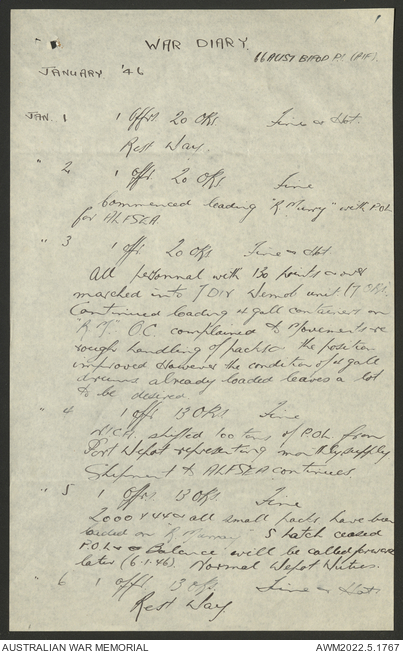 WAR DIARY
66 AUST BIPOD Pl. (AIF)
JANUARY '46
JAN. 1 1 Offr. 20 ORs. Fine & Hot.
Rest Day.
" 2 1 Offr. 20 ORs. Fine
Commenced loading "R Murry" with POL
for ALFSEA.
" 3 1 Offr. 20 ORs Fine & Hot
All personnel with 130 points & over
marched into 7 Div Demob unit (7 ORs).
Continued loading 4 gall containers on
OC complained to Movements re
rough handling of packs the position
improved however the condition of 4 gall
drums already loaded leaves a lot
to be desired
" 4 1 Offr 13 ORs. Fine
shifted 100 tons of POL from
Port Depot representing monthly supply
Shipment to ALFSEA continues
" 5 1 Offr. 13 ORs. Fine
all small packs have been
loaded on "R Murray" 5 hatch ceased
P.O.L. Balance will be called forward
later (6-1-46). Normal Depot Duties.
" 6 1 Offr. 13 ORs. Fine & Hot
Rest Day
AUSTRALIAN WAR MEMORIAL AWM2022.5.1767